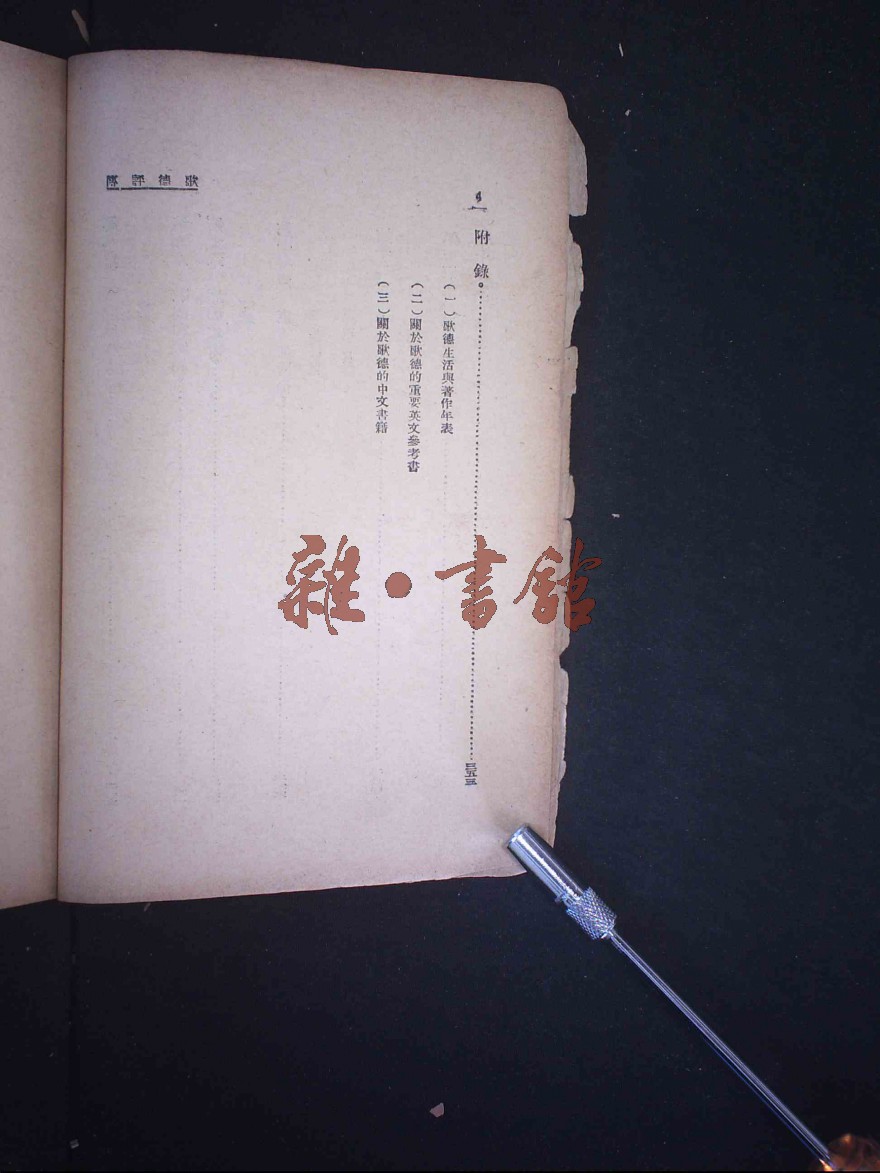 歌德評傳
附錄。……三五三
(一)歌德生活與著作年表
(二)關於歌德的重要英文參考書
(三)關於歌德的中文書籍
雜·書館